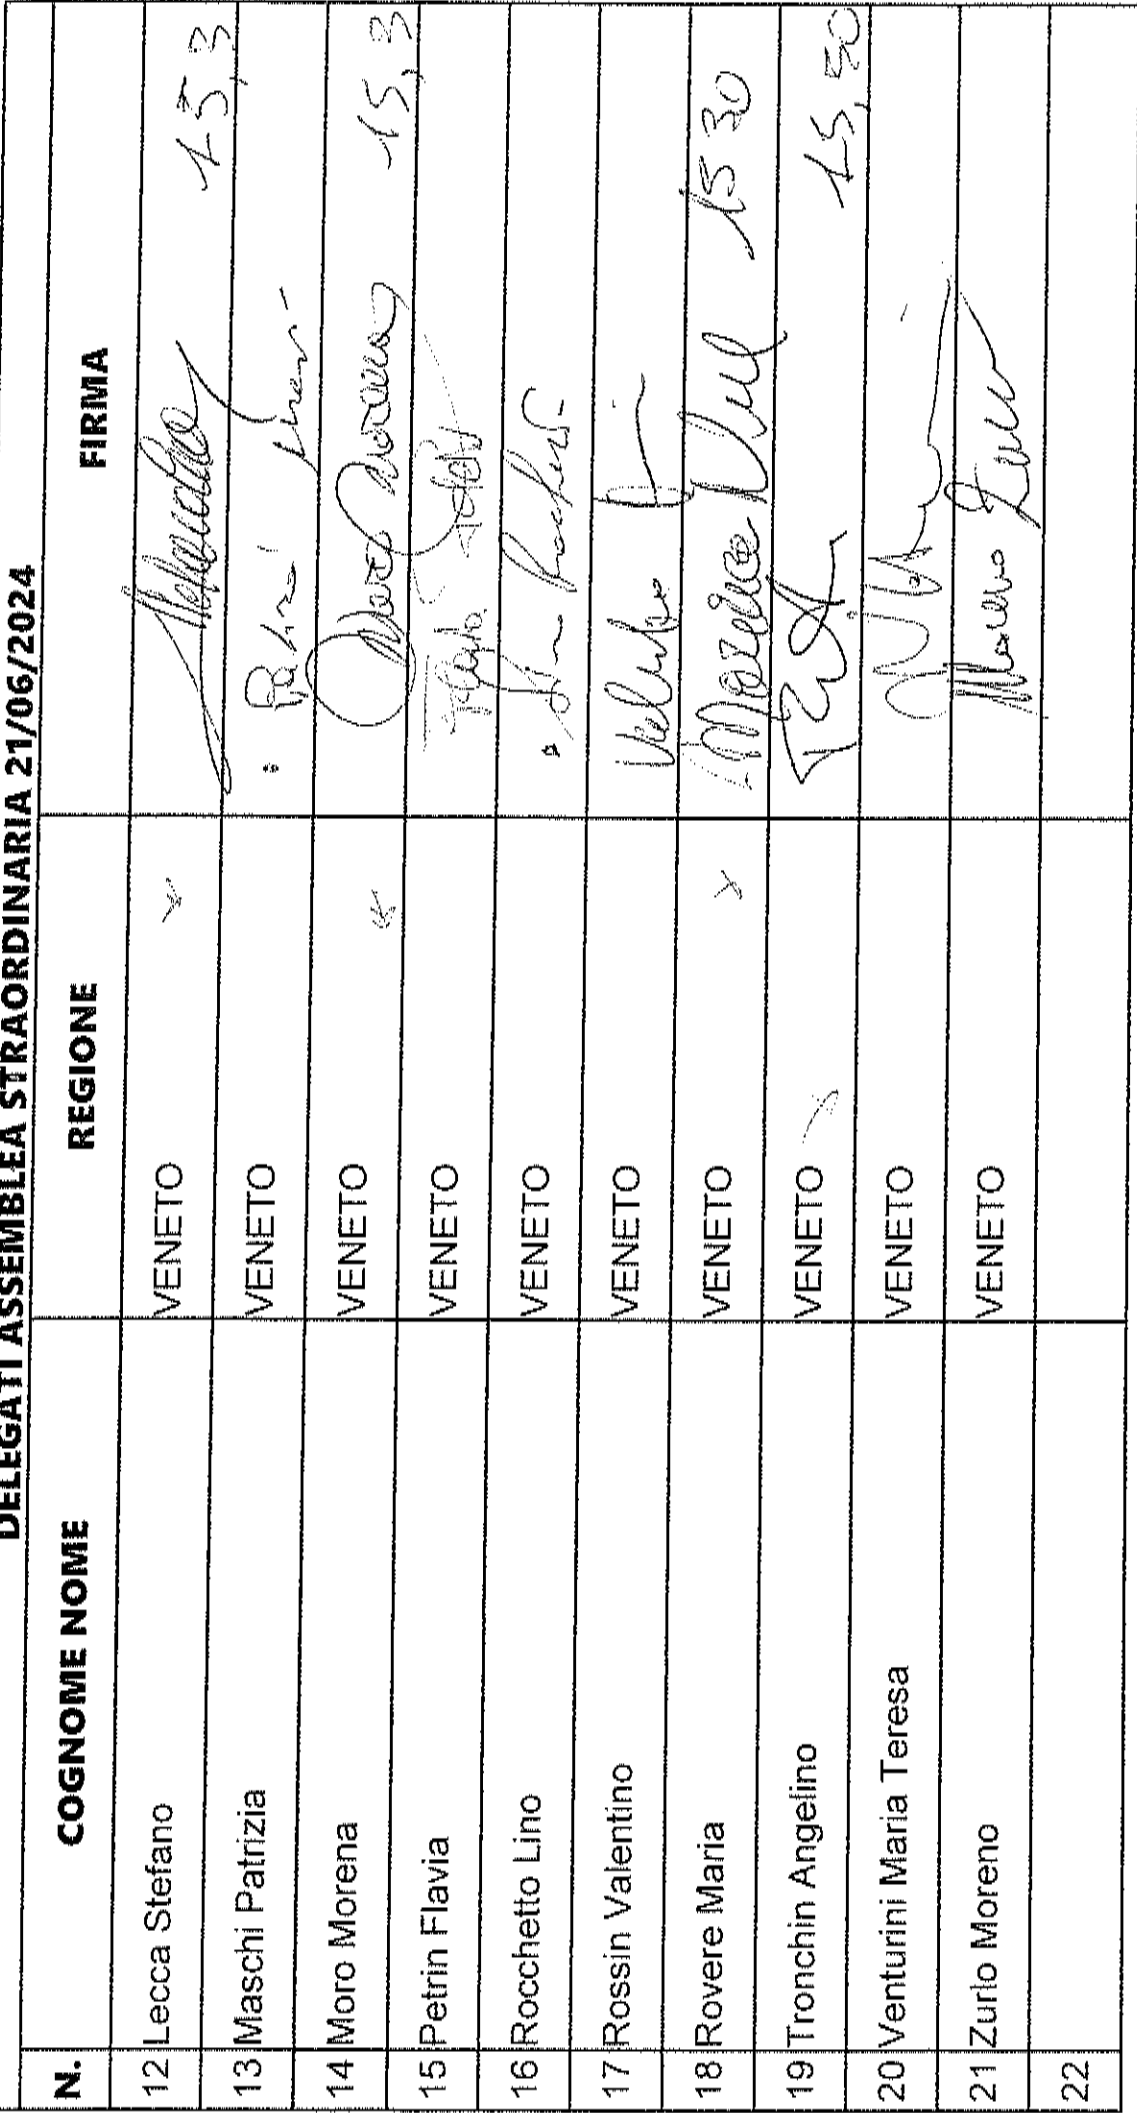 DELEGATI ASSEMBLEA STRAORDINARIA 21/06/2024
N. COGNOME NOME REGIONE FIRMA
12 Lecca Stefano VENETO 15,3
13 Maschi Patrizia VENETO
14 Moro Morena VENETO Moro Morena 15,3
15 Petrin Flavia VENETO
16 Rocchetto Lino VENETO Lino Rocchetto
17 Rossin Valentino VENETO
18 Rovere Maria VENETO 15 30
19 Tronchin Angelino VENETO 15,30
20 Venturini Maria Teresa VENETO
21 Zurlo Moreno VENETO Moreno Zurlo
22